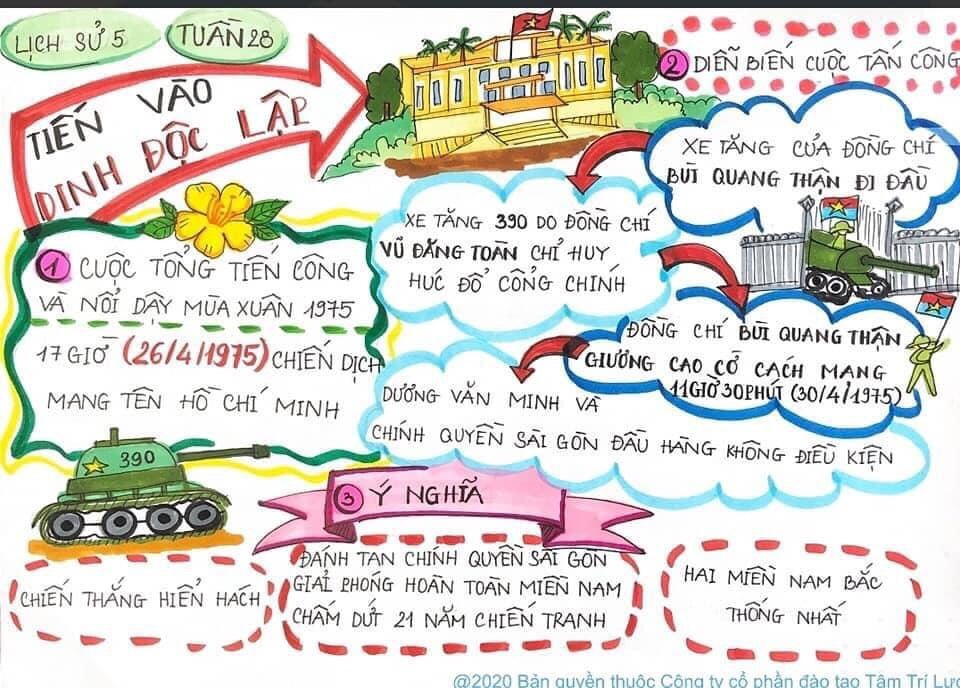 LỊCH SỬ 5
TUẦN 28
TIẾN VÀO
DINH ĐỘC LẬP
1 CUỘC TỔNG TIẾN CÔNG
VÀ NỔI DẬY MÙA XUÂN 1975
17 GIỜ (26/4/1975) CHIẾN DỊCH
MANG TÊN HỒ CHÍ MINH
390
2 DIỄN BIẾN CUỘC TẤN CÔNG
XE TĂNG CỦA ĐỒNG CHÍ
BÙI QUANG THẬN ĐI ĐẦU
XE TĂNG 390 DO ĐỒNG CHÍ
VŨ ĐĂNG TOÀN CHỈ HUY
HÚC ĐỔ CỔNG CHÍNH
ĐỒNG CHÍ BÙI QUANG THẬN
GIƯƠNG CAO CỜ CÁCH MẠNG
11GIỜ 30PHÚT (30/4/1975)
DƯƠNG VĂN MINH VÀ
CHÍNH QUYỀN SÀI GÒN ĐẦU HÀNG KHÔNG ĐIỀU KIỆN
3 Ý NGHĨA
CHIẾN THẮNG HIỂN HÁCH
ĐÁNH TAN CHÍNH QUYỀN SÀI GÒN
GIẢI PHÓNG HOÀN TOÀN MIỀN NAM
CHẤM DỨT 21 NĂM CHIẾN TRANH
HAI MIỀN NAM BẮC
THỐNG NHẤT
@2020 Bản quyền thuộc Công ty cổ phần đào tạo Tâm Trí Lực